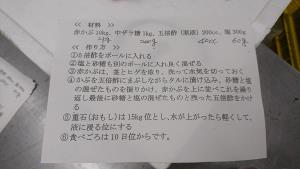 << 材料 >>
赤かぶ10kg、中ザラ糖1kg、五倍酢(原液)200cc、塩300g
200g 40cc 60g
<< 作り方 >>
①五倍酢をボールに入れる
②塩と砂糖も別のボールに入れ良く混ぜる
③赤かぶは、茎とヒゲを取り、洗って水気を切っておく
④かぶを五倍酢にまぶしながらタルに漬け込み、砂糖と塩
の混ぜたものを振りかけ、赤かぶを上に並べこれを繰り
返し最後に砂糖と塩の混ぜたものと残った五倍酢をかけ
る
⑤重石(おもし)は15kg位とし、水が上がったら軽くして、
液に浸る位にする
⑥食べごろは10日位からです。